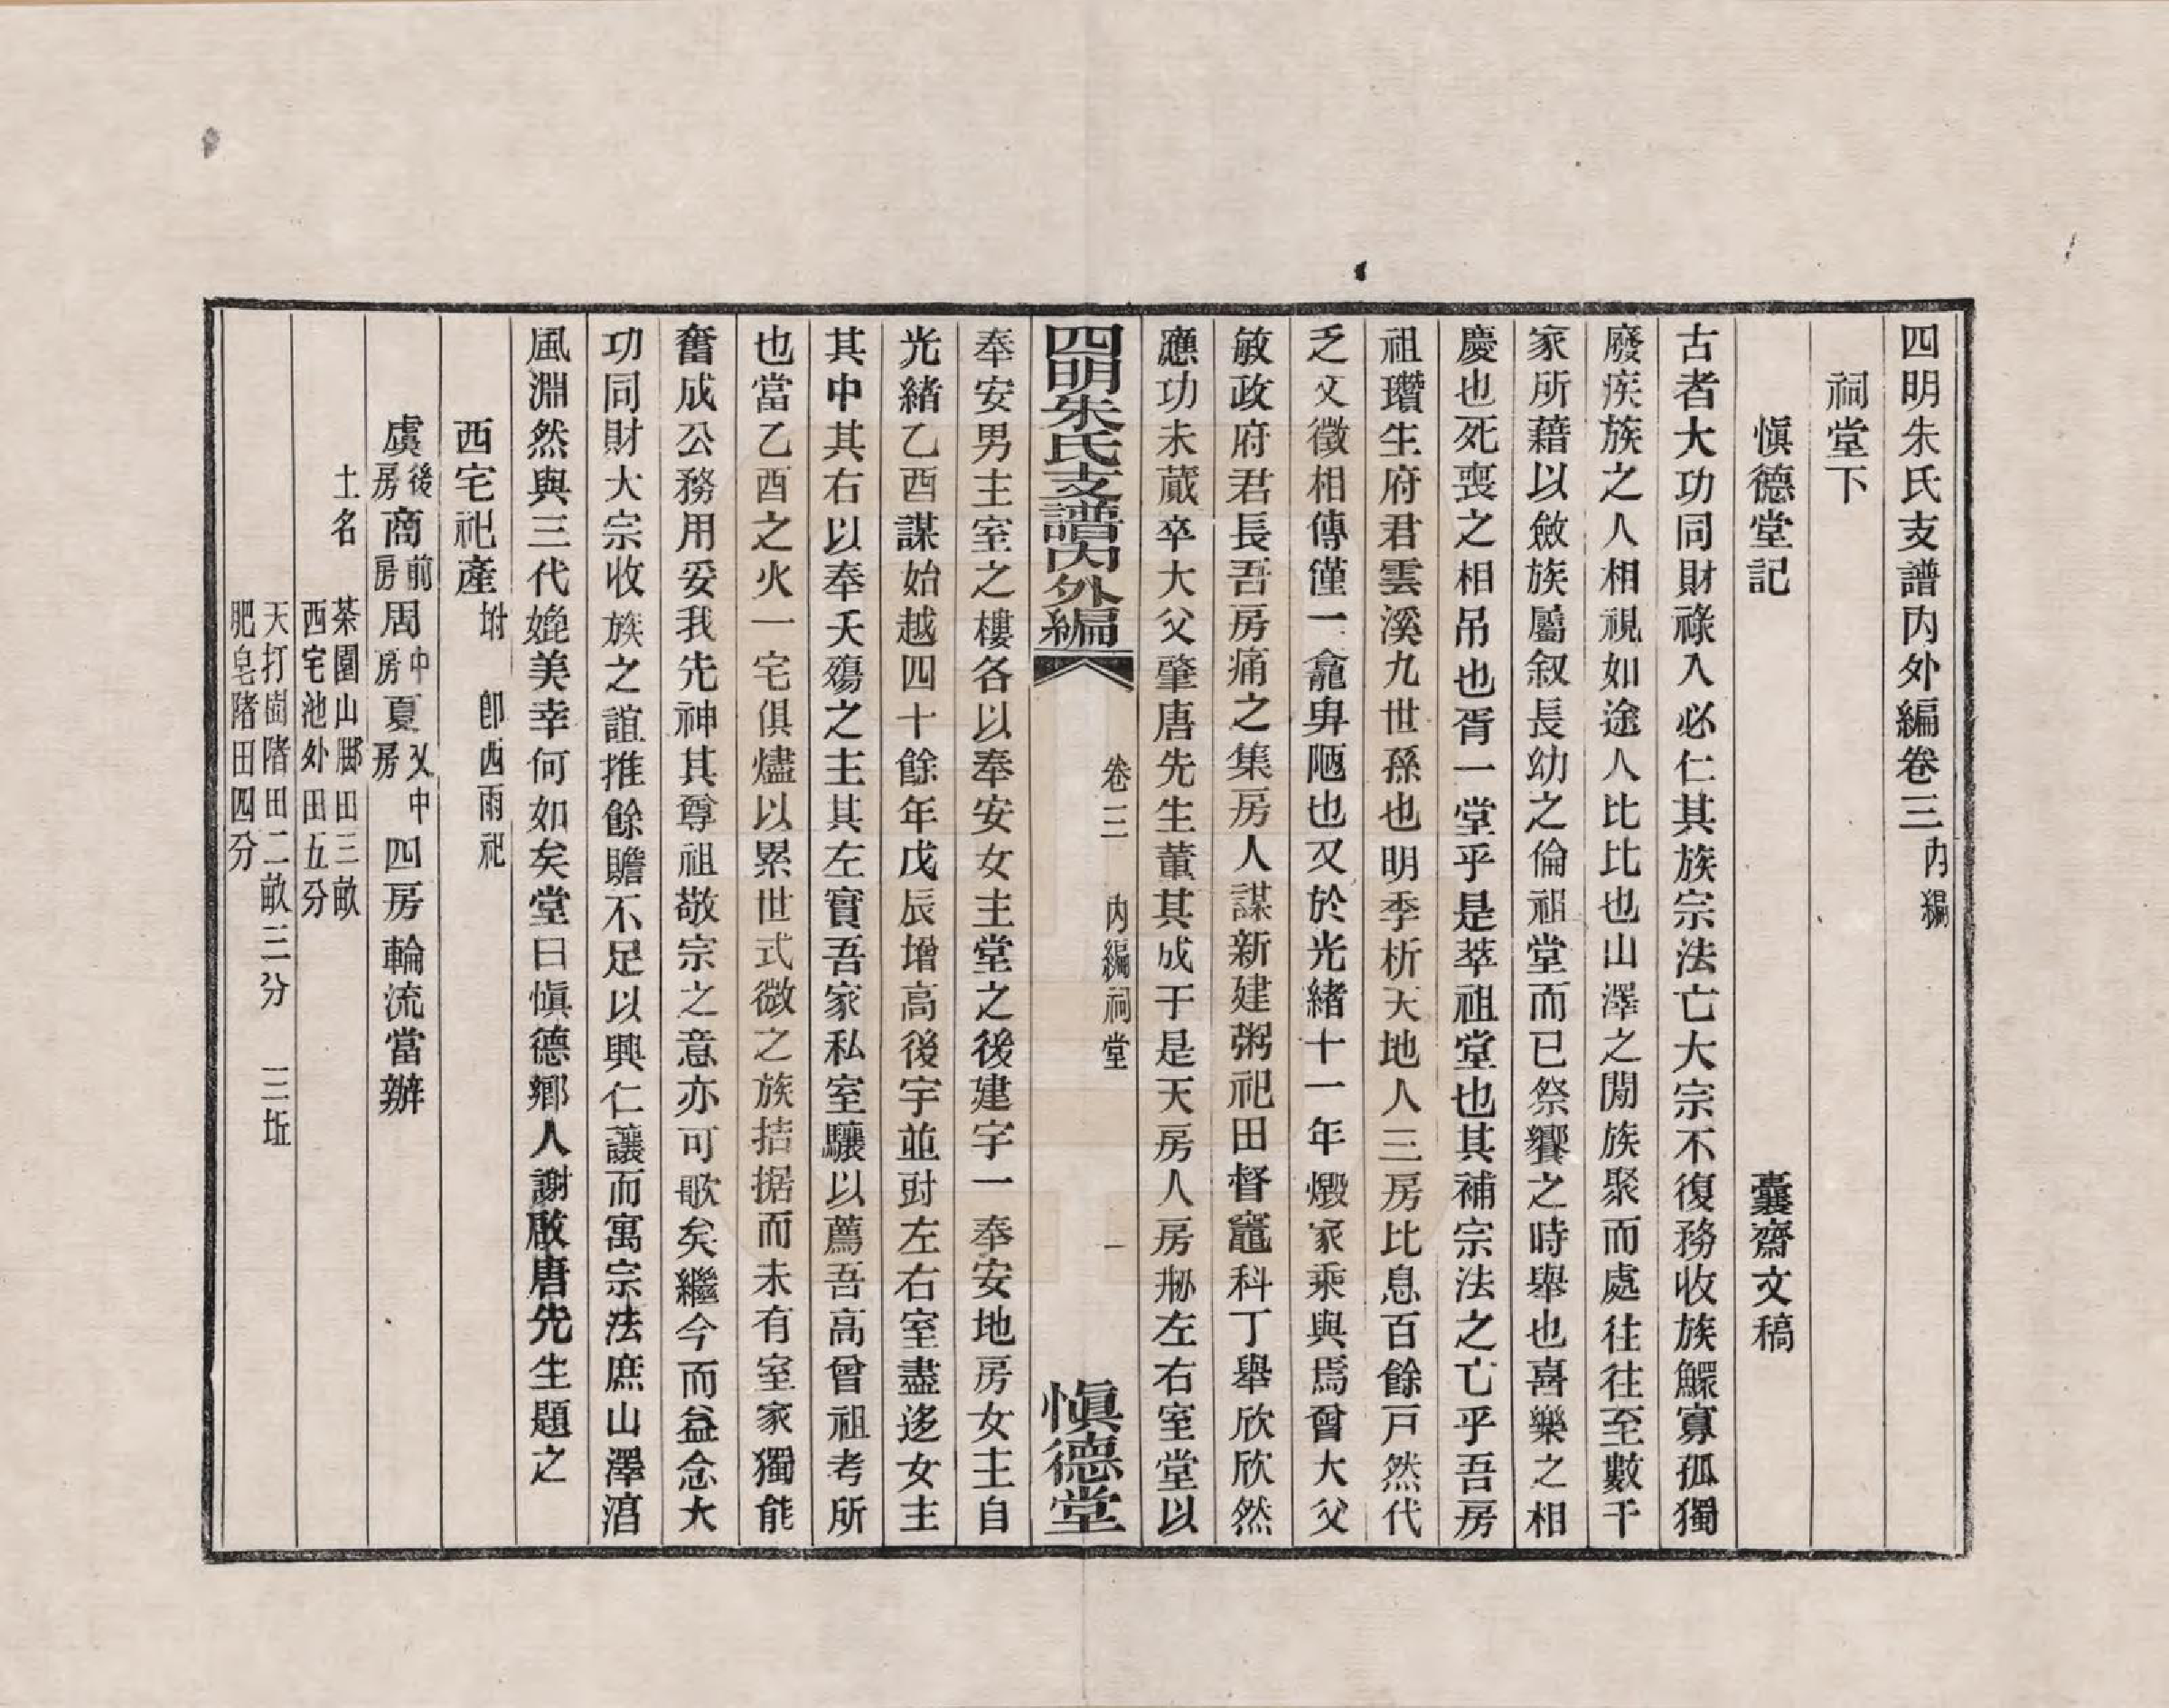 四明朱氏支譜內外編卷三內編
祠堂下
愼德堂記　囊齋文稿
古者大功同財祿入必仁其族宗法亡大宗不復務收族鰥寡孤獨
廢疾族之人相視如途人比比也山澤之閒族聚而處往往至數千
家所藉以斂族屬叙長幼之倫祖堂而已祭饗之時舉也喜樂之相
慶也死喪之相吊也胥一堂乎是萃祖堂也其補宗法之亡乎吾房
祖瓚生府君雲溪九世孫也明季析天地人三房比息百餘戸然代
乏文徵相傳僅一龕卑陋也又於光緒十一年燬家乘與焉曾大父
敏政府君長吾房痛之集房人謀新建粥祀田督竈科丁舉欣欣然
應功未蕆卒大父肇唐先生董其成于是天房人房刱左右室堂以
四明朱氏支譜內外編　卷三　內編祠堂　一　愼德堂
奉安男主室之樓各以奉安女主堂之後建宇一奉安地房女主自
光緒乙酉謀始越四十餘年戊辰增高後宇並尌左右室盡迻女主
其中其右以奉夭殤之主其左實吾家私室驤以薦吾高曾祖考所
也當乙酉之火一宅俱燼以累世式微之族拮据而未有室家獨能
奮成公務用妥我先神其尊祖敬宗之意亦可歌矣繼今而益念大
功同財大宗收族之誼推餘贍不足以興仁讓而寓宗法庶山澤湻
風淵然與三代媲美幸何如矣堂曰愼德鄉人謝啟唐先生題之
西宅祀產坿　卽西雨祀
虞後房商前房周中房夏乂中房四房輪流當辦
土名　茶園山脚田三畝
西宅池外田五分
天打崮䧘田二畝三分　三坵
肥皂䧘田四分